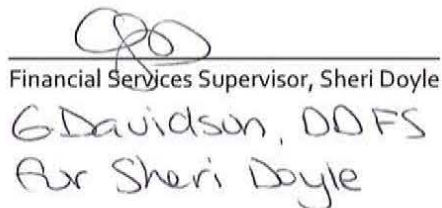 Financial Services Supervisor, Sheri Doyle
GDavidson, DDFS
for Sheri Doyle